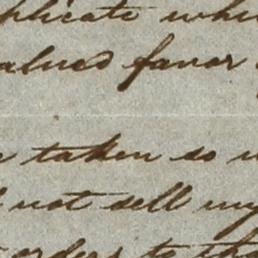 plicate whi
alued favor
taken so
not sell my
orders to tha